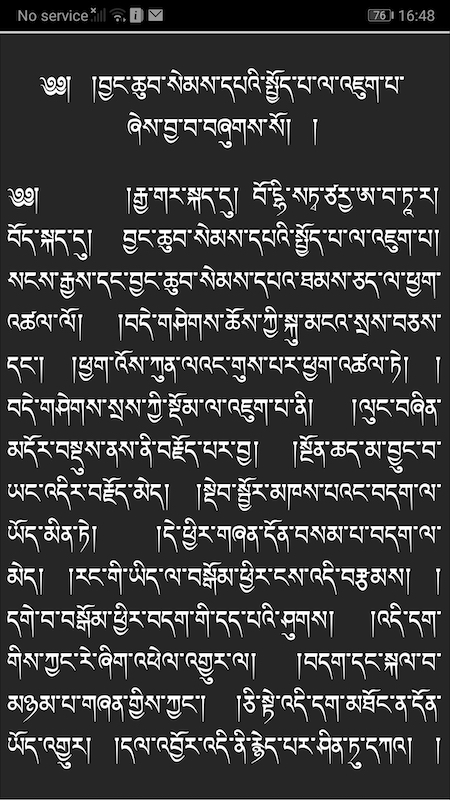 No service 76 16:48
༄༅། །བྱང་ཆུབ་སེམས་དཔའི་སྤྱོད་པ་ལ་འཇུག་པ་
ཞེས་བྱ་བ་བཞུགས་སོ། །
༄༅། །རྒྱ་གར་སྐད་དུ། བོ་དྷི་སཏྭ་ཙརྱ་ཨ་བ་ཏཱ་ར།
བོད་སྐད་དུ། བྱང་ཆུབ་སེམས་དཔའི་སྤྱོད་པ་ལ་འཇུག་པ།
སངས་རྒྱས་དང་བྱང་ཆུབ་སེམས་དཔའ་ཐམས་ཅད་ལ་ཕྱག་
འཚལ་ལོ། །བདེ་གཤེགས་ཆོས་ཀྱི་སྐུ་མངའ་སྲས་བཅས་
དང་། །ཕྱག་འོས་ཀུན་ལའང་གུས་པར་ཕྱག་འཚལ་ཏེ། །
བདེ་གཤེགས་སྲས་ཀྱི་སྡོམ་ལ་འཇུག་པ་ནི། །ལུང་བཞིན་
མདོར་བསྡུས་ནས་ནི་བརྗོད་པར་བྱ། །སྔོན་ཆད་མ་བྱུང་བ་
ཡང་འདིར་བརྗོད་མེད། །སྡེབ་སྦྱོར་མཁས་པའང་བདག་ལ་
ཡོད་མིན་ཏེ། །དེ་ཕྱིར་གཞན་དོན་བསམ་པ་བདག་ལ་
མེད། །རང་གི་ཡིད་ལ་བསྒོམ་ཕྱིར་ངས་འདི་བརྩམས། །
དགེ་བ་བསྒོམ་ཕྱིར་བདག་གི་དད་པའི་ཤུགས། །འདི་དག་
གིས་ཀྱང་རེ་ཞིག་འཕེལ་འགྱུར་ལ། །བདག་དང་སྐལ་བ་
མཉམ་པ་གཞན་གྱིས་ཀྱང་། །ཅི་སྟེ་འདི་དག་མཐོང་ན་དོན་
ཡོད་འགྱུར། །དལ་འབྱོར་འདི་ནི་རྙེད་པར་ཤིན་ཏུ་དཀའ། །